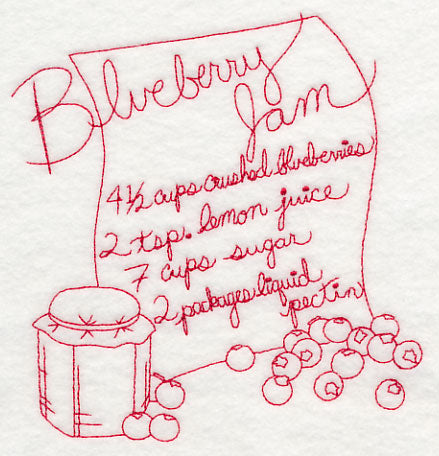 Blueberry
Jam
4 1/2 cups crushed blueberries
2 tsp. lemon juice
7 cups sugar
2 packages liquid
pectin